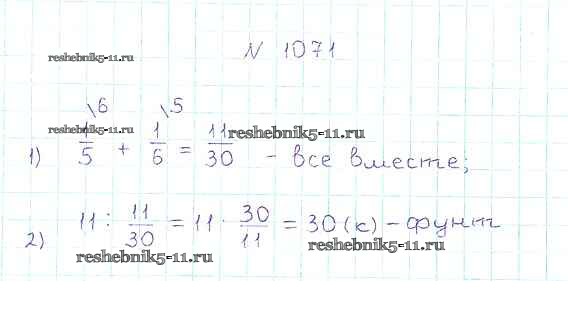 N 1071
reshebnik5-11.ru
\6 \5
reshebnik5-11.ru
1) 1/5 + 1/6 = 11/30 - все вместе;
reshebnik5-11.ru
2) 11 : 11/30 = 11 · 30/11 = 30 (к) - фунт
reshebnik5-11.ru
reshebnik5-11.ru